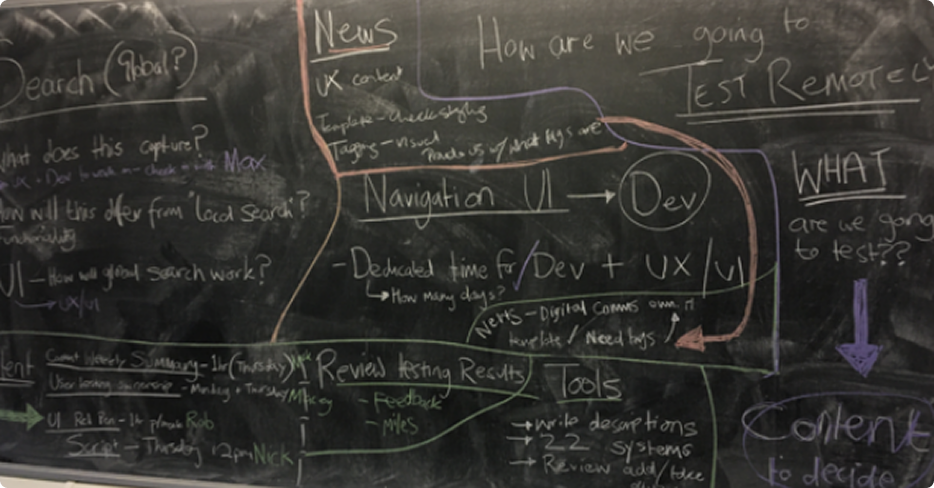 Search (Global?)
What does this capture?
UX + Dev to work on - check Max
How will this differ from "local search"?
Functionality
UI - How will global search work?
UX/UI
News
UX content
Template - check styling
Tagging - visual
w/ what tags are
How are we going to
TEST REMOTELY
Navigation UI → Dev
- Dedicated time for Dev + UX/UI
How many days?
News - Digital Comms own it
template / Need tags
WHAT
are we going
to test??
Content
to decide
Content Summary - 1hr (Thursday)
User testing - Monday + Thursday
UI - 1hr Rob
Script - Thursday 12pm Nick
Review testing Results
- Feedback
- Miles
Tools
→ write descriptions
→ 22 systems
→ Review add/take